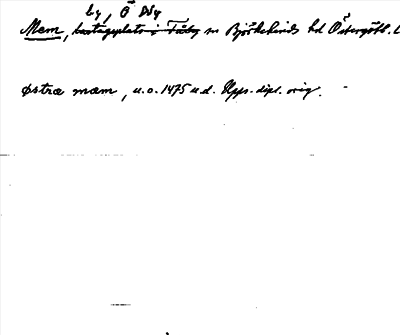 by, Ö Ny
Mem, lastageplats i Tåby sn Björkekinds hd Östergötl. L
østræ mæm, u.o. 1475 u.d. Upps. dipl. orig.